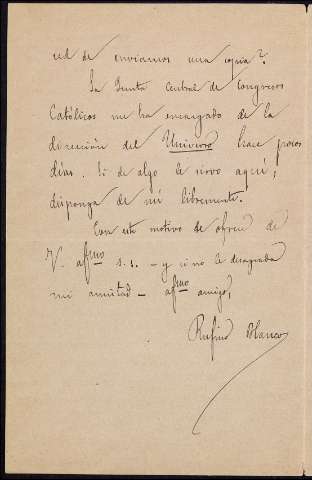 ted de enviarnos una copia?
La Junta Central de Congresos
Católicos me ha encargado de la
dirección del Universo hace pocos
días. Si de algo le sirvo aquí,
disponga de mí libremente.
Con este motivo se ofrece de
V. afmo s. s. - y si no le desagrada
mi amistad - afmo amigo,
Rufino Blanco